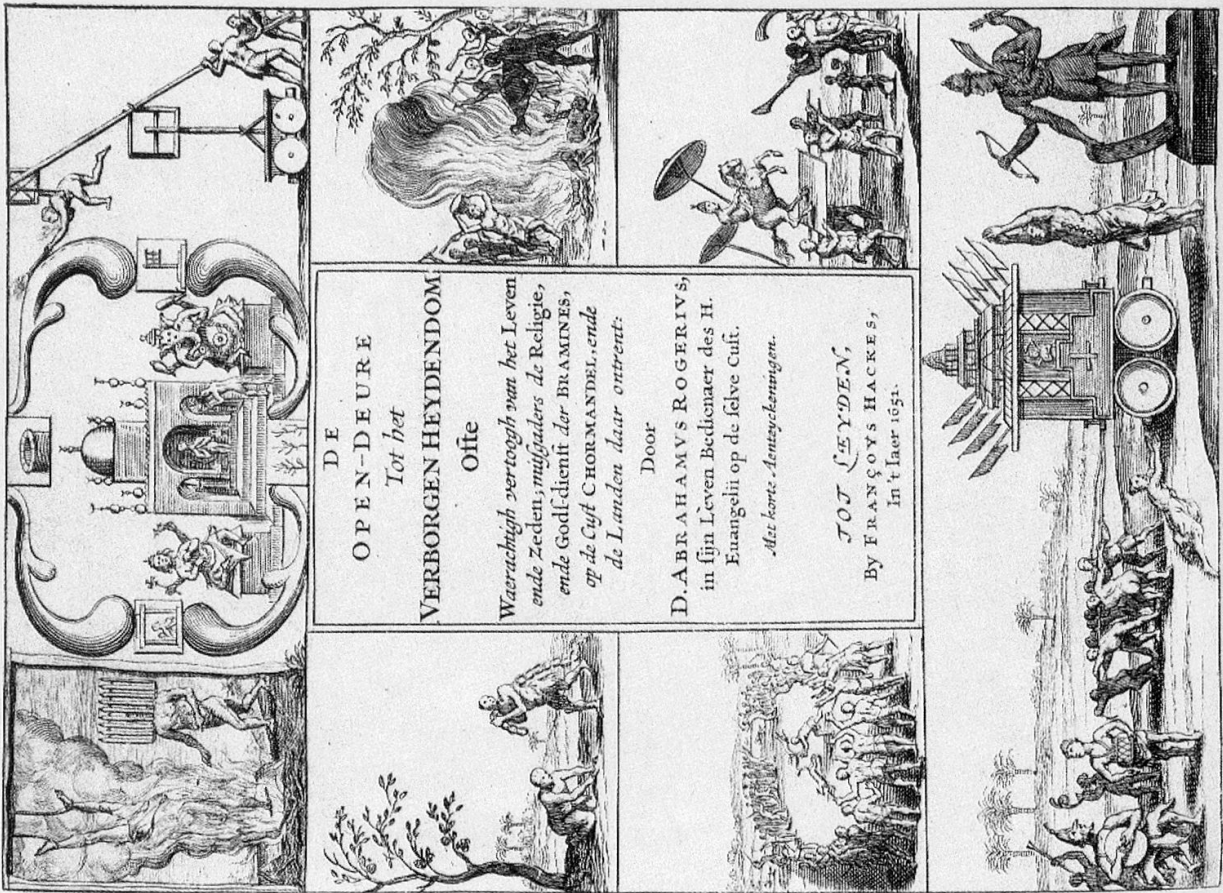 DE
OPEN-DEURE
Tot het
VERBORGEN HEYDENDOM
Ofte
Waerachtigh vertoogh van het Leven
ende Zeden; mitſgaders de Religie,
ende Godſ-dienſt der BRAMINES,
op de Cuſt CHORMANDEL, ende
de Landen daar ontrent:
Door
D. ABRAHAMVS ROGERIVS,
in ſijn Leven Bedienaer des H.
Euangelii op de ſelve Cuſt.
Met korte Aenteyckeningen.
TOT LEYDEN,
By FRANÇOYS HACKES,
in 't Iaer 1651.